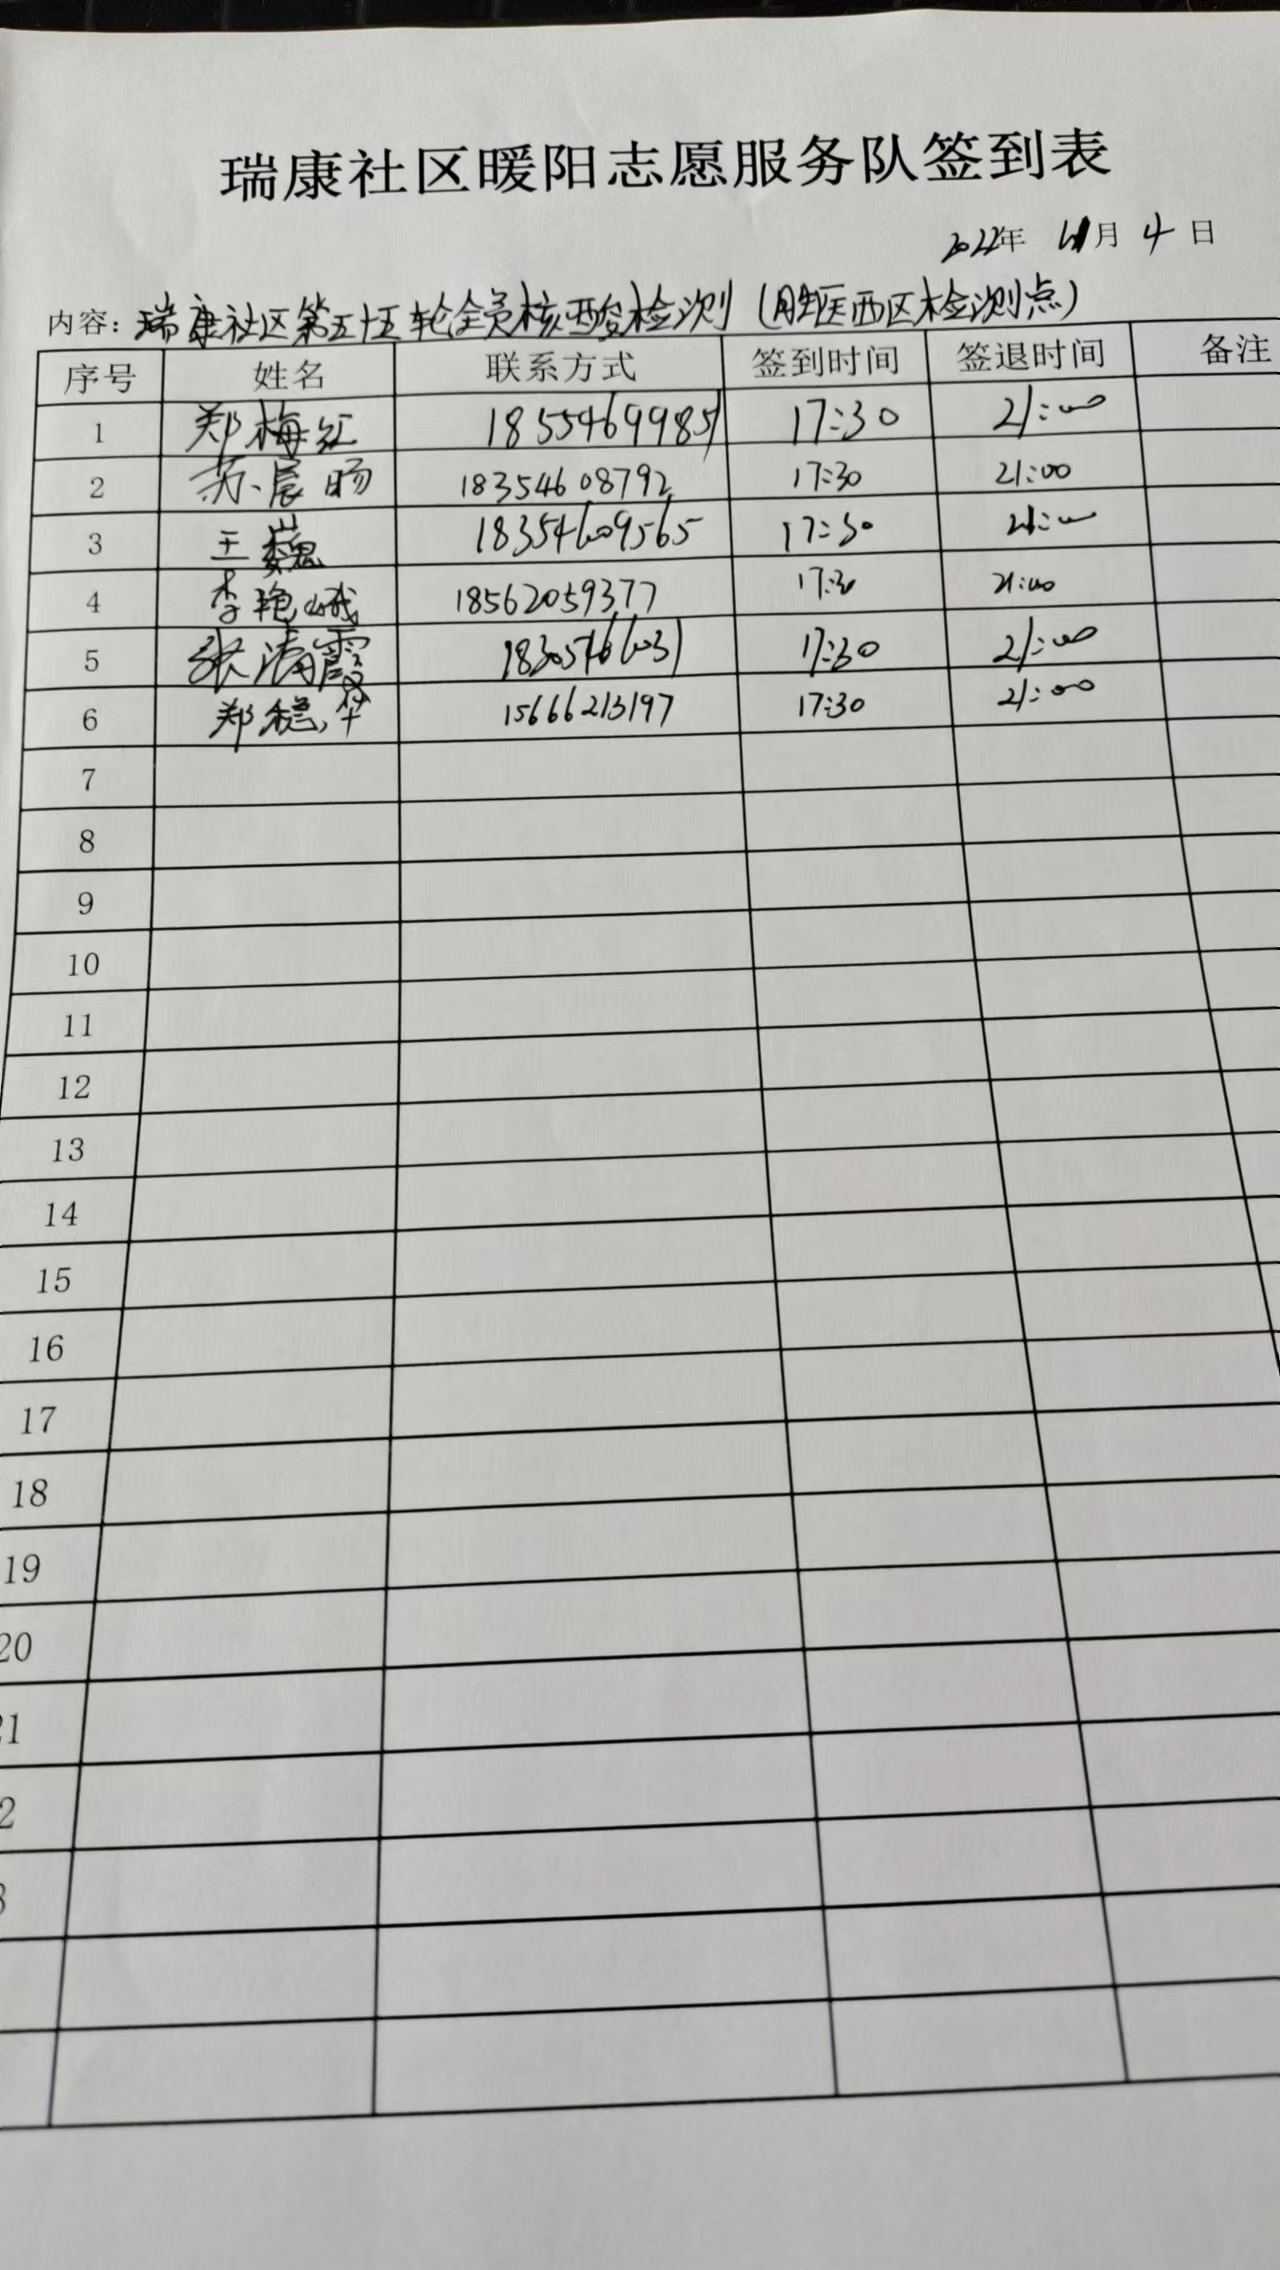 瑞康社区暖阳志愿服务队签到表
2022年 11月 4 日
内容：瑞康社区第五十五轮全员核酸检测（胜医西区检测点）
序号 姓名 联系方式 签到时间 签退时间 备注
1 郑梅红 18554699851 17:30 21:00
2 苏晨旸 18354608792 17:30 21:00
3 王巍 18354609565 17:30 21:00
4 李艳峨 18562059377 17:30 21:00
5 张清霞 17:30 21:00
6 郑稳华 15666213197 17:30 21:00
7
8
9
10
11
12
13
14
15
16
17
18
19
20
21
2
3